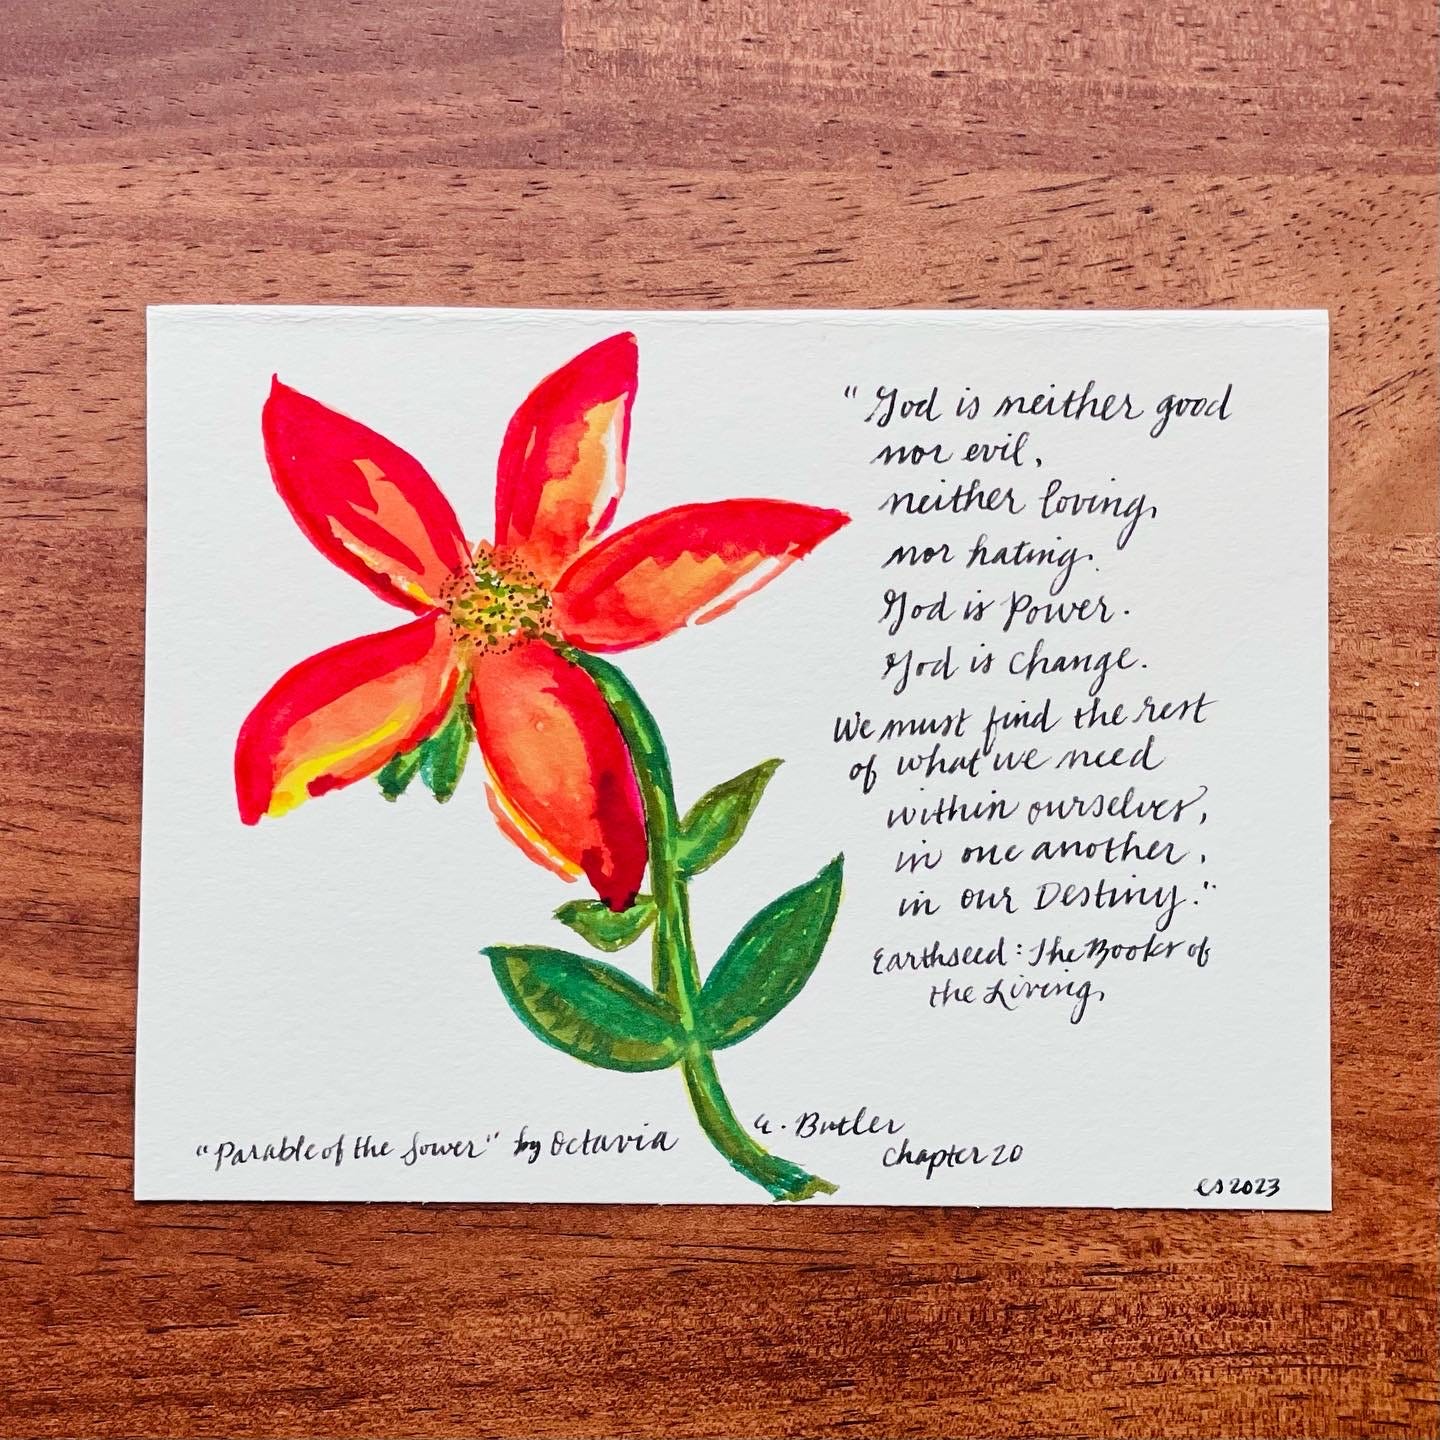 "God is neither good
nor evil,
neither loving,
nor hating.
God is Power.
God is Change.
We must find the rest
of what we need
within ourselves,
in one another,
in our Destiny."
Earthseed: The Books of
the Living,
"Parable of the Sower" by Octavia E. Butler
Chapter 20
CS 2023